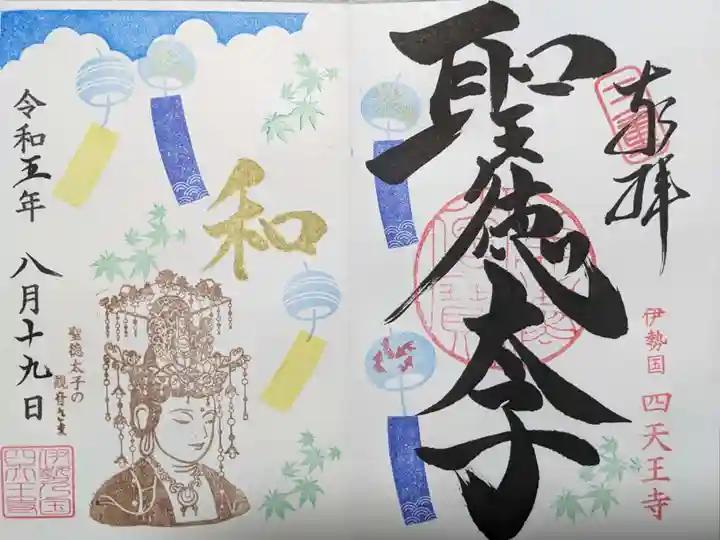 奉拝
聖徳太子
伊勢国 四天王寺
和
聖徳太子の
観音さま
令和五年 八月十九日